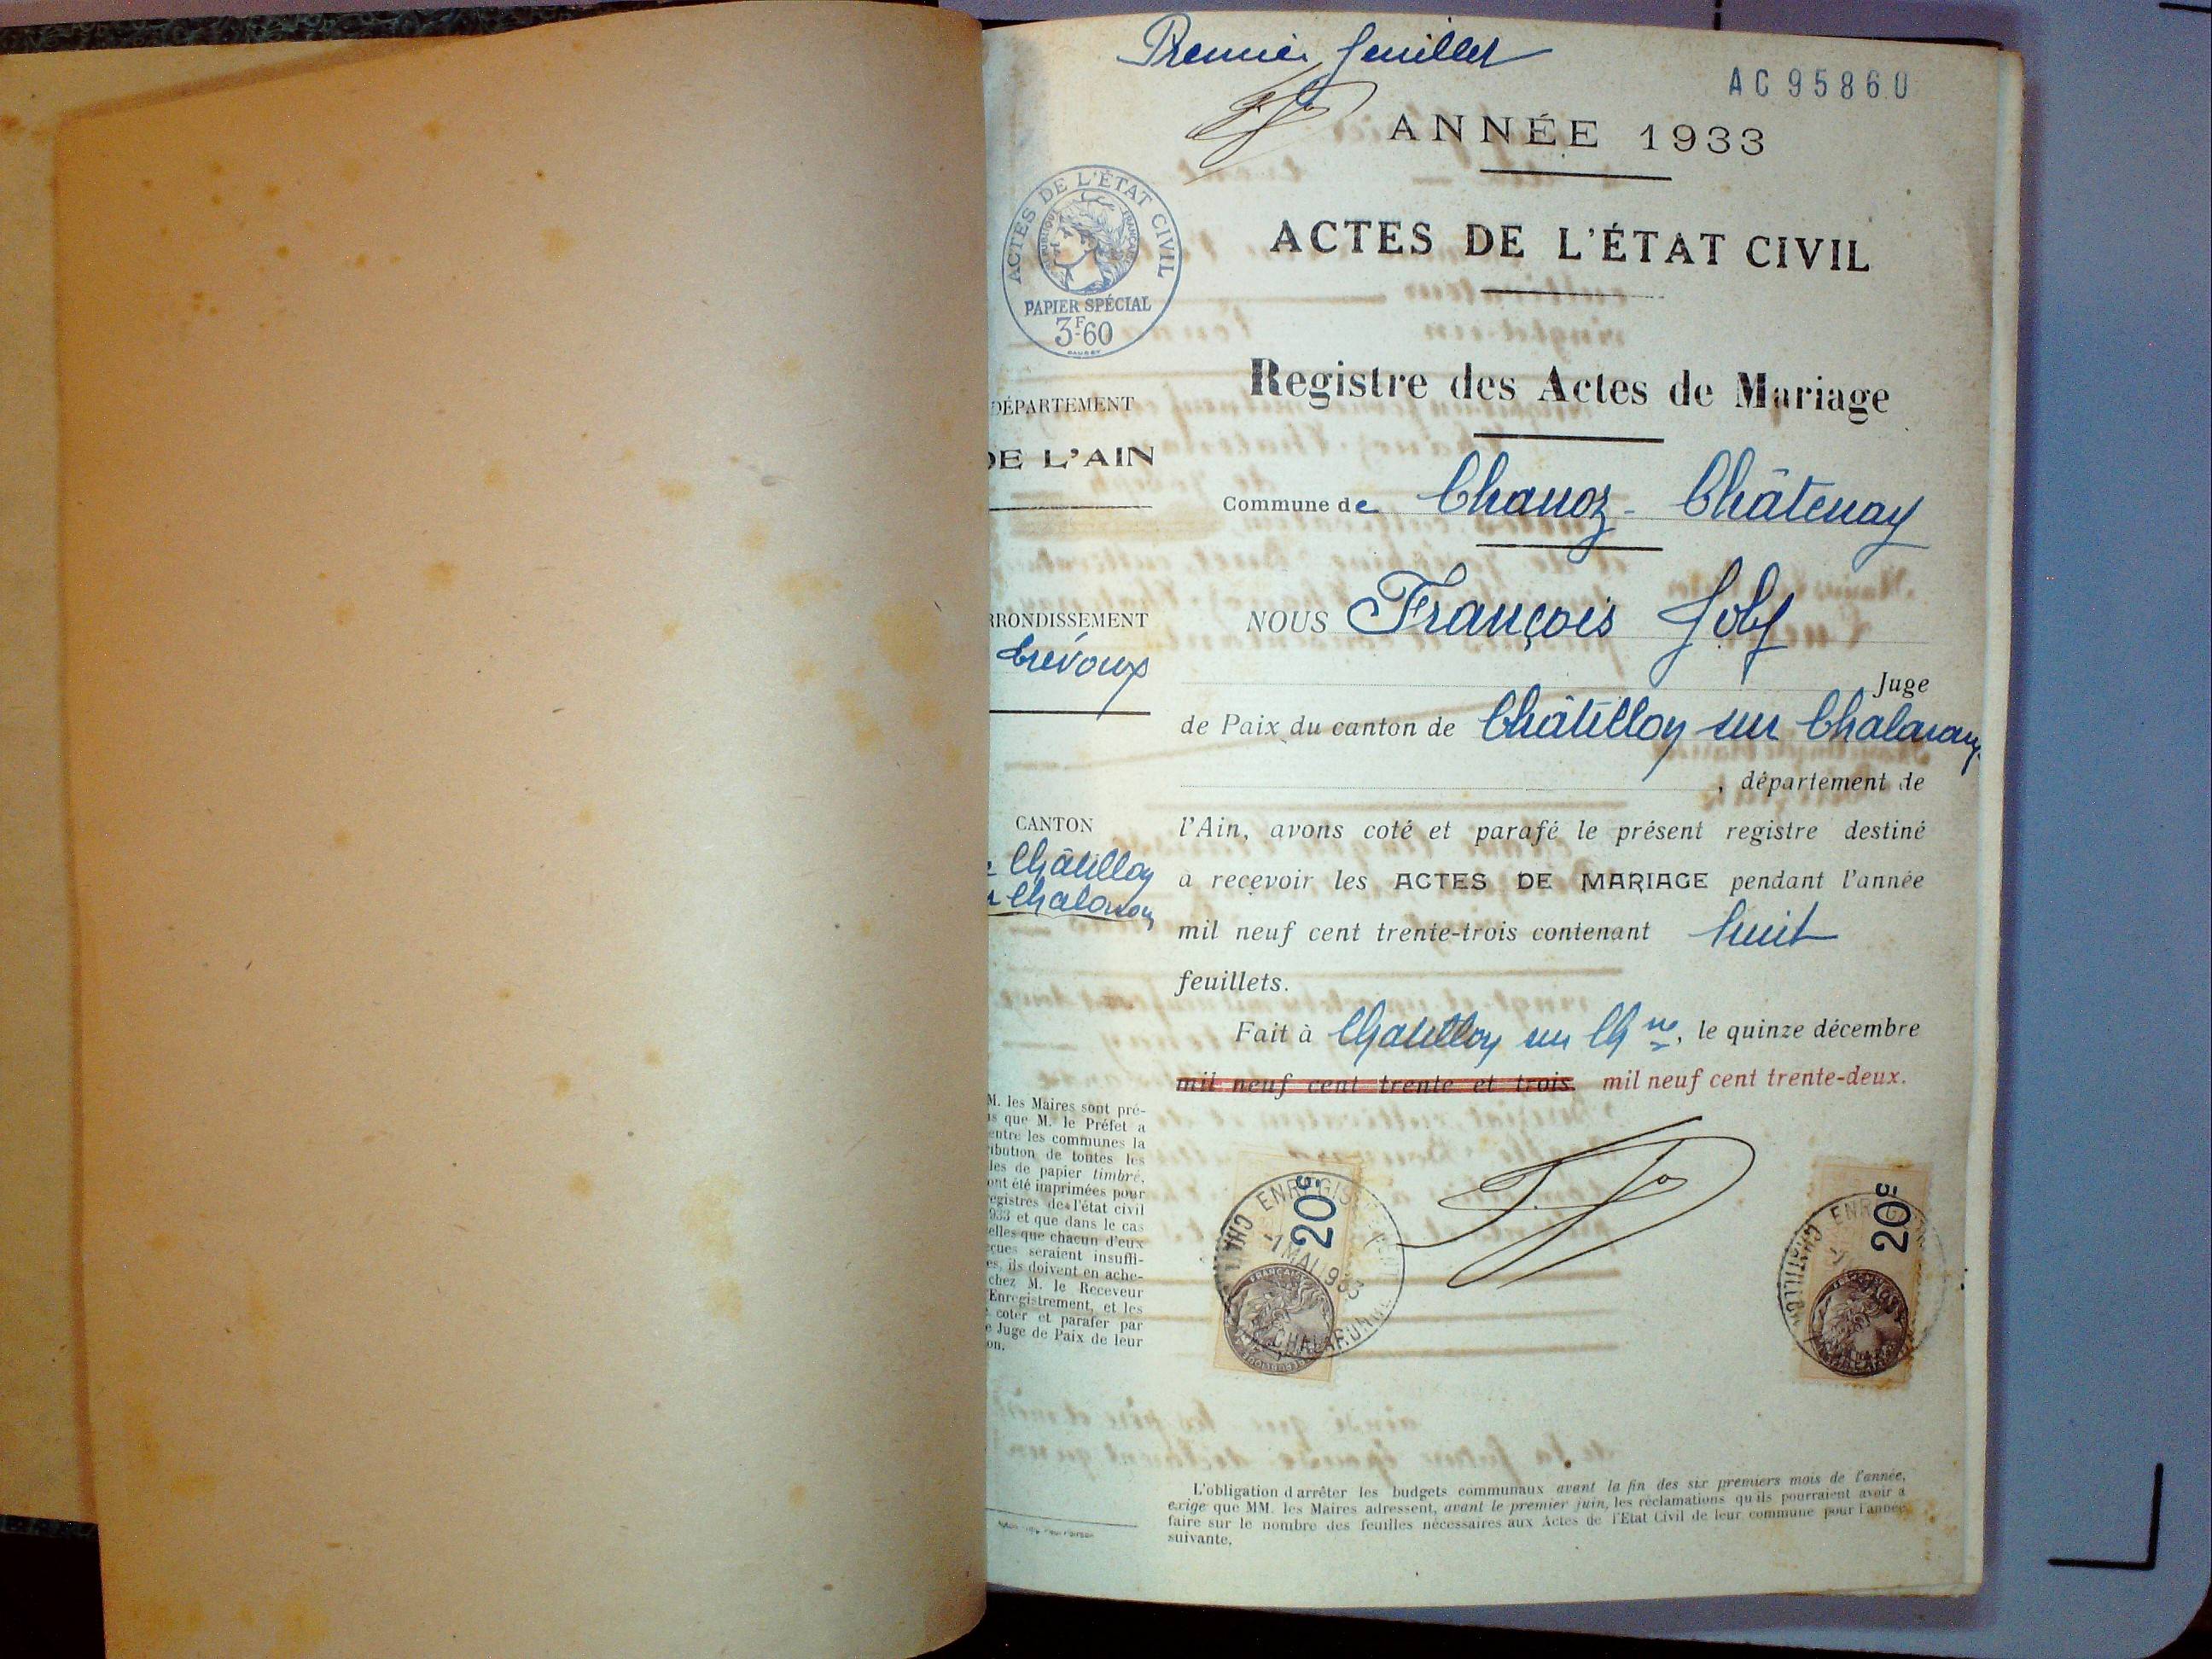 Premier feuillet
AC 95860
ANNÉE 1933
ACTES DE L'ÉTAT CIVIL
RÉPUBLIQUE FRANÇAISE
PAPIER SPÉCIAL
3F60
ACTES DE L'ÉTAT CIVIL
Registre des Actes de Mariage
DÉPARTEMENT
DE L'AIN
Commune de Chanoz-Châtenay
RRONDISSEMENT
Trévoux
NOUS François Joly
Juge
de Paix du canton de Châtillon sur Chalaronne
, département de
CANTON
Châtillon
Chalaronne
l'Ain, avons coté et parafé le présent registre destiné
à recevoir les ACTES DE MARIAGE pendant l'année
mil neuf cent trente-trois contenant huit
feuillets.
Fait à Chatillon sur Ch ne, le quinze décembre
mil neuf cent trente et trois mil neuf cent trente-deux.
M. les Maires sont pré-
s que M. le Préfet a
entre les communes la
ibution de toutes les
les de papier timbré,
ont été imprimées pour
egistres de l'état civil
933 et que dans le cas
elles que chacun d'eux
çues seraient insuffi-
es, ils doivent en ache-
chez M. le Receveur
Enregistrement, et les
coter et parafer par
e Juge de Paix de leur
on.
20c
20c
L'obligation d'arrêter les budgets communaux avant la fin des six premiers mois de l'année,
exige que MM. les Maires adressent, avant le premier juin, les réclamations qu'ils pourraient avoir à
faire sur le nombre des feuilles nécessaires aux Actes de l'Etat Civil de leur commune pour l'année
suivante.